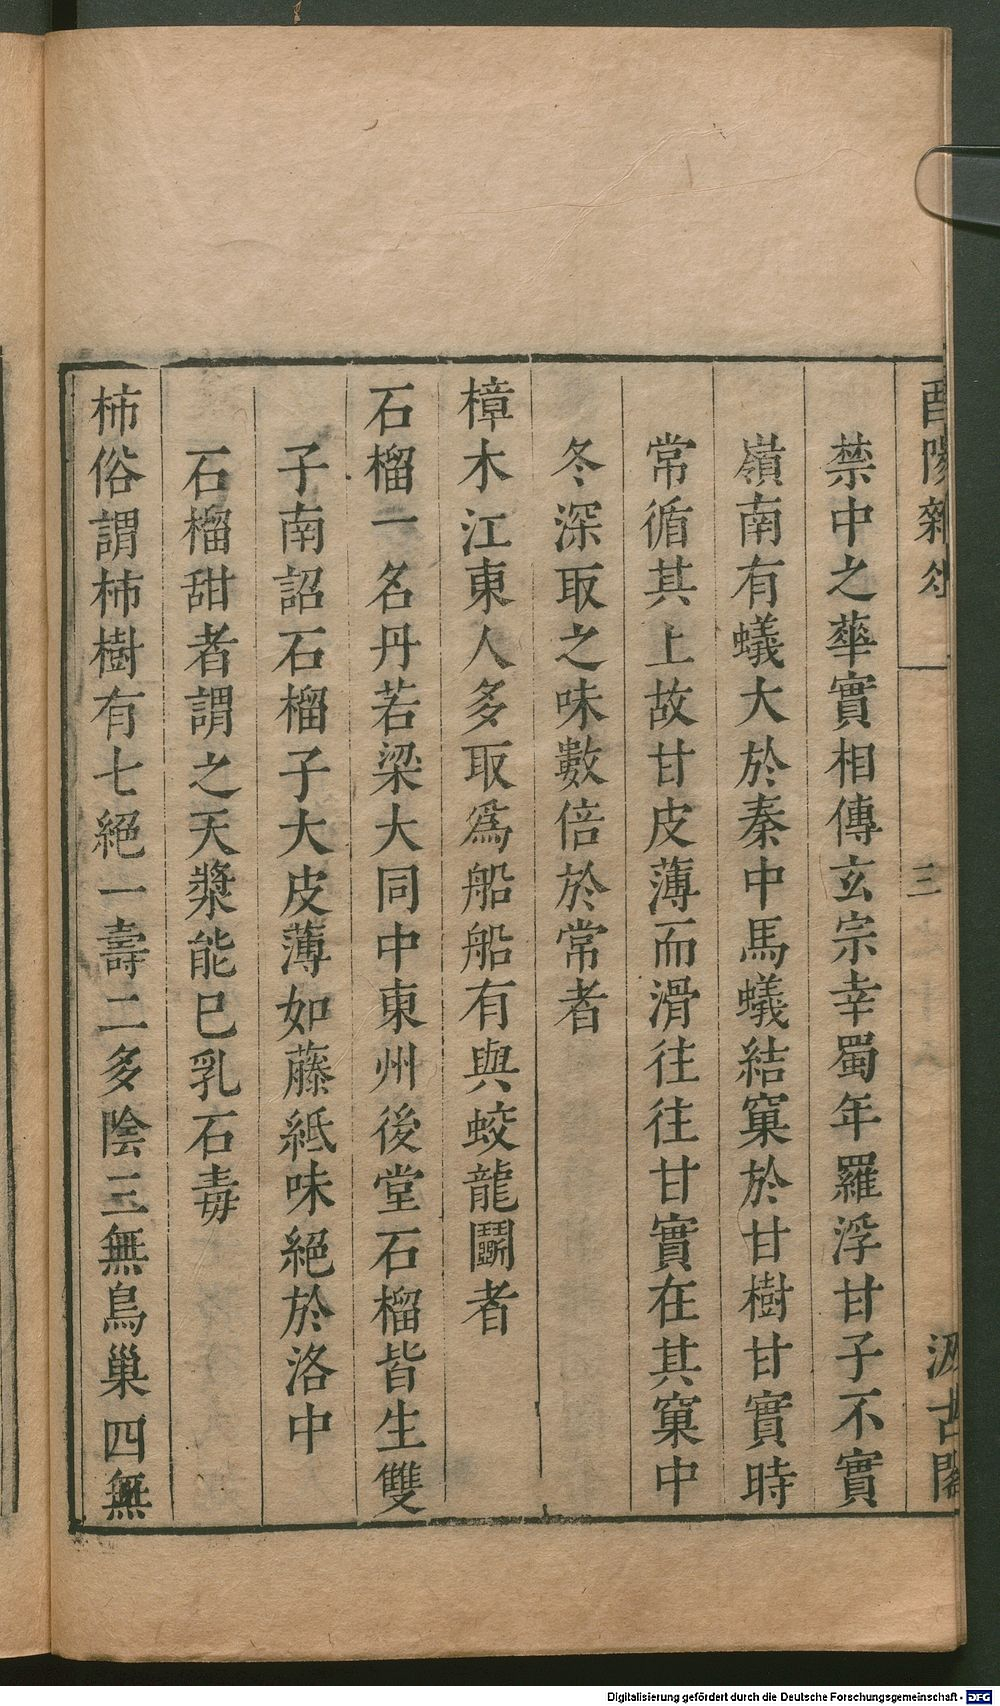 酉陽雜俎
三
汲古閣
禁中之蕐實相傳玄宗幸蜀年羅浮甘子不實
嶺南有蟻大於秦中馬蟻結窠於甘樹甘實時
常循其上故甘皮薄而滑往往甘實在其窠中
冬深取之味數倍於常者
樟木江東人多取爲船船有與蛟龍鬭者
石榴一名丹若梁大同中東州後堂石榴皆生雙
子南詔石榴子大皮薄如藤紙味絕於洛中
石榴甜者謂之天漿能已乳石毒
柿俗謂柿樹有七絕一壽二多陰三無鳥巢四無
Digitalisierung gefördert durch die Deutsche Forschungsgemeinschaft - DFG